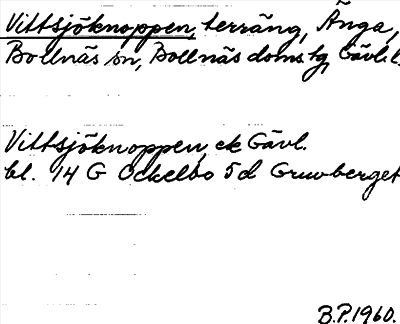 Vittsjöknoppen, terräng, Änga,
Bollnäs sn, Bollnäs doms tg, Gävl. l.
Vittsjöknoppen, ek Gävl.
bl. 14 G Ockelbo 5 d Gruvberget
B.P. 1960.